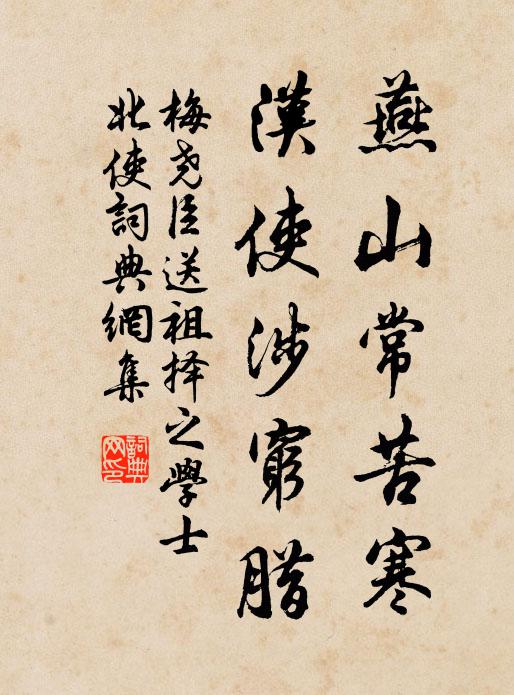 燕山常苦寒
漢使涉窮腊
梅尧臣送祖择之學士
北使詞典網集
詞典
网印